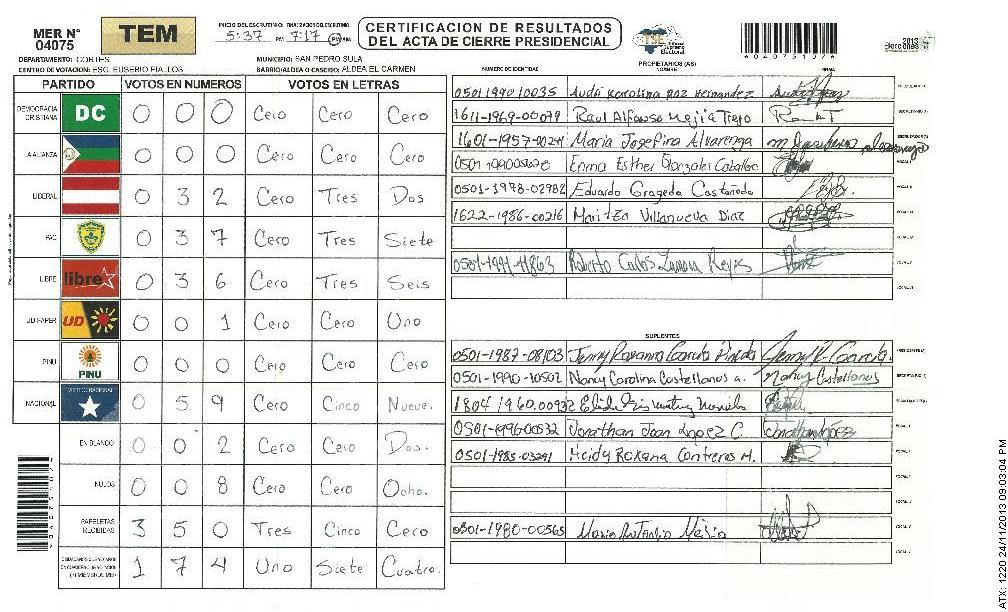 MER N° 04075
TEM
INICIO DEL ESCRUTINIO: FINALIZACION DEL ESCRITINIO
5:37 PM 7:17 PM AM
CERTIFICACION DE RESULTADOS
DEL ACTA DE CIERRE PRESIDENCIAL
TSE Tribunal Supremo Electoral
2013
Elecciones
DEPARTAMENTO: CORTES
MUNICIPIO: SAN PEDRO SULA
CENTRO DE VOTACION: ESC. EUSEBIO FIALLOS
BARRIO/ALDEA O CASERIO: ALDEA EL CARMEN
PARTIDO VOTOS EN NUMEROS VOTOS EN LETRAS
DEMOCRACIA CRISTIANA DC 0 0 0 Cero Cero Cero
LA ALIANZA 0 0 0 Cero Cero Cero
LIBERAL 0 3 2 Cero Tres Dos
PAC 0 3 7 Cero Tres Siete
LIBRE libre 0 3 6 Cero Tres Seis
UD FAPER UD 0 0 1 Cero Cero Uno
PINU PINU 0 0 0 Cero Cero Cero
NACIONAL PARTIDO NACIONAL 0 5 9 Cero Cinco Nueve.
EN BLANCO 0 0 2 Cero Cero Dos.
NULOS 0 0 8 Cero Cero Ocho.
PAPELETAS RECIBIDAS 3 5 0 Tres Cinco Cero
1 7 4 Uno Siete Cuatro.
PROPIETARIOS (AS)
NUMERO DE IDENTIDAD NOMBRE FIRMA
0501 1990 10035 Audri Karolina Paz Hernandez
1611-1969-00079 Raul Alfonso Mejia Trejo
1601-1957-00241 Maria Josefina Alvarenga
Enma Esther Gonzales
0501-1978-02982 Eduardo Grageda Castañeda
1622-1986-00216 Maritza Villanueva Diaz
Roberto Carlos Reyes
SUPLENTES
0501-1987-08103 Jenny Garcia
0501-1990-10502 Nancy Carolina Castellanos a. Nancy Castellanos
1804 1960.00932
0501-1996-00532 Jonathan Joan Lopez C.
0501-1985-03291 Heidy Roxana Contreres M.
0801-1980-00565 Mario Antonio Mejia
ATX: 1220 24/11/2013 09:03:04 PM